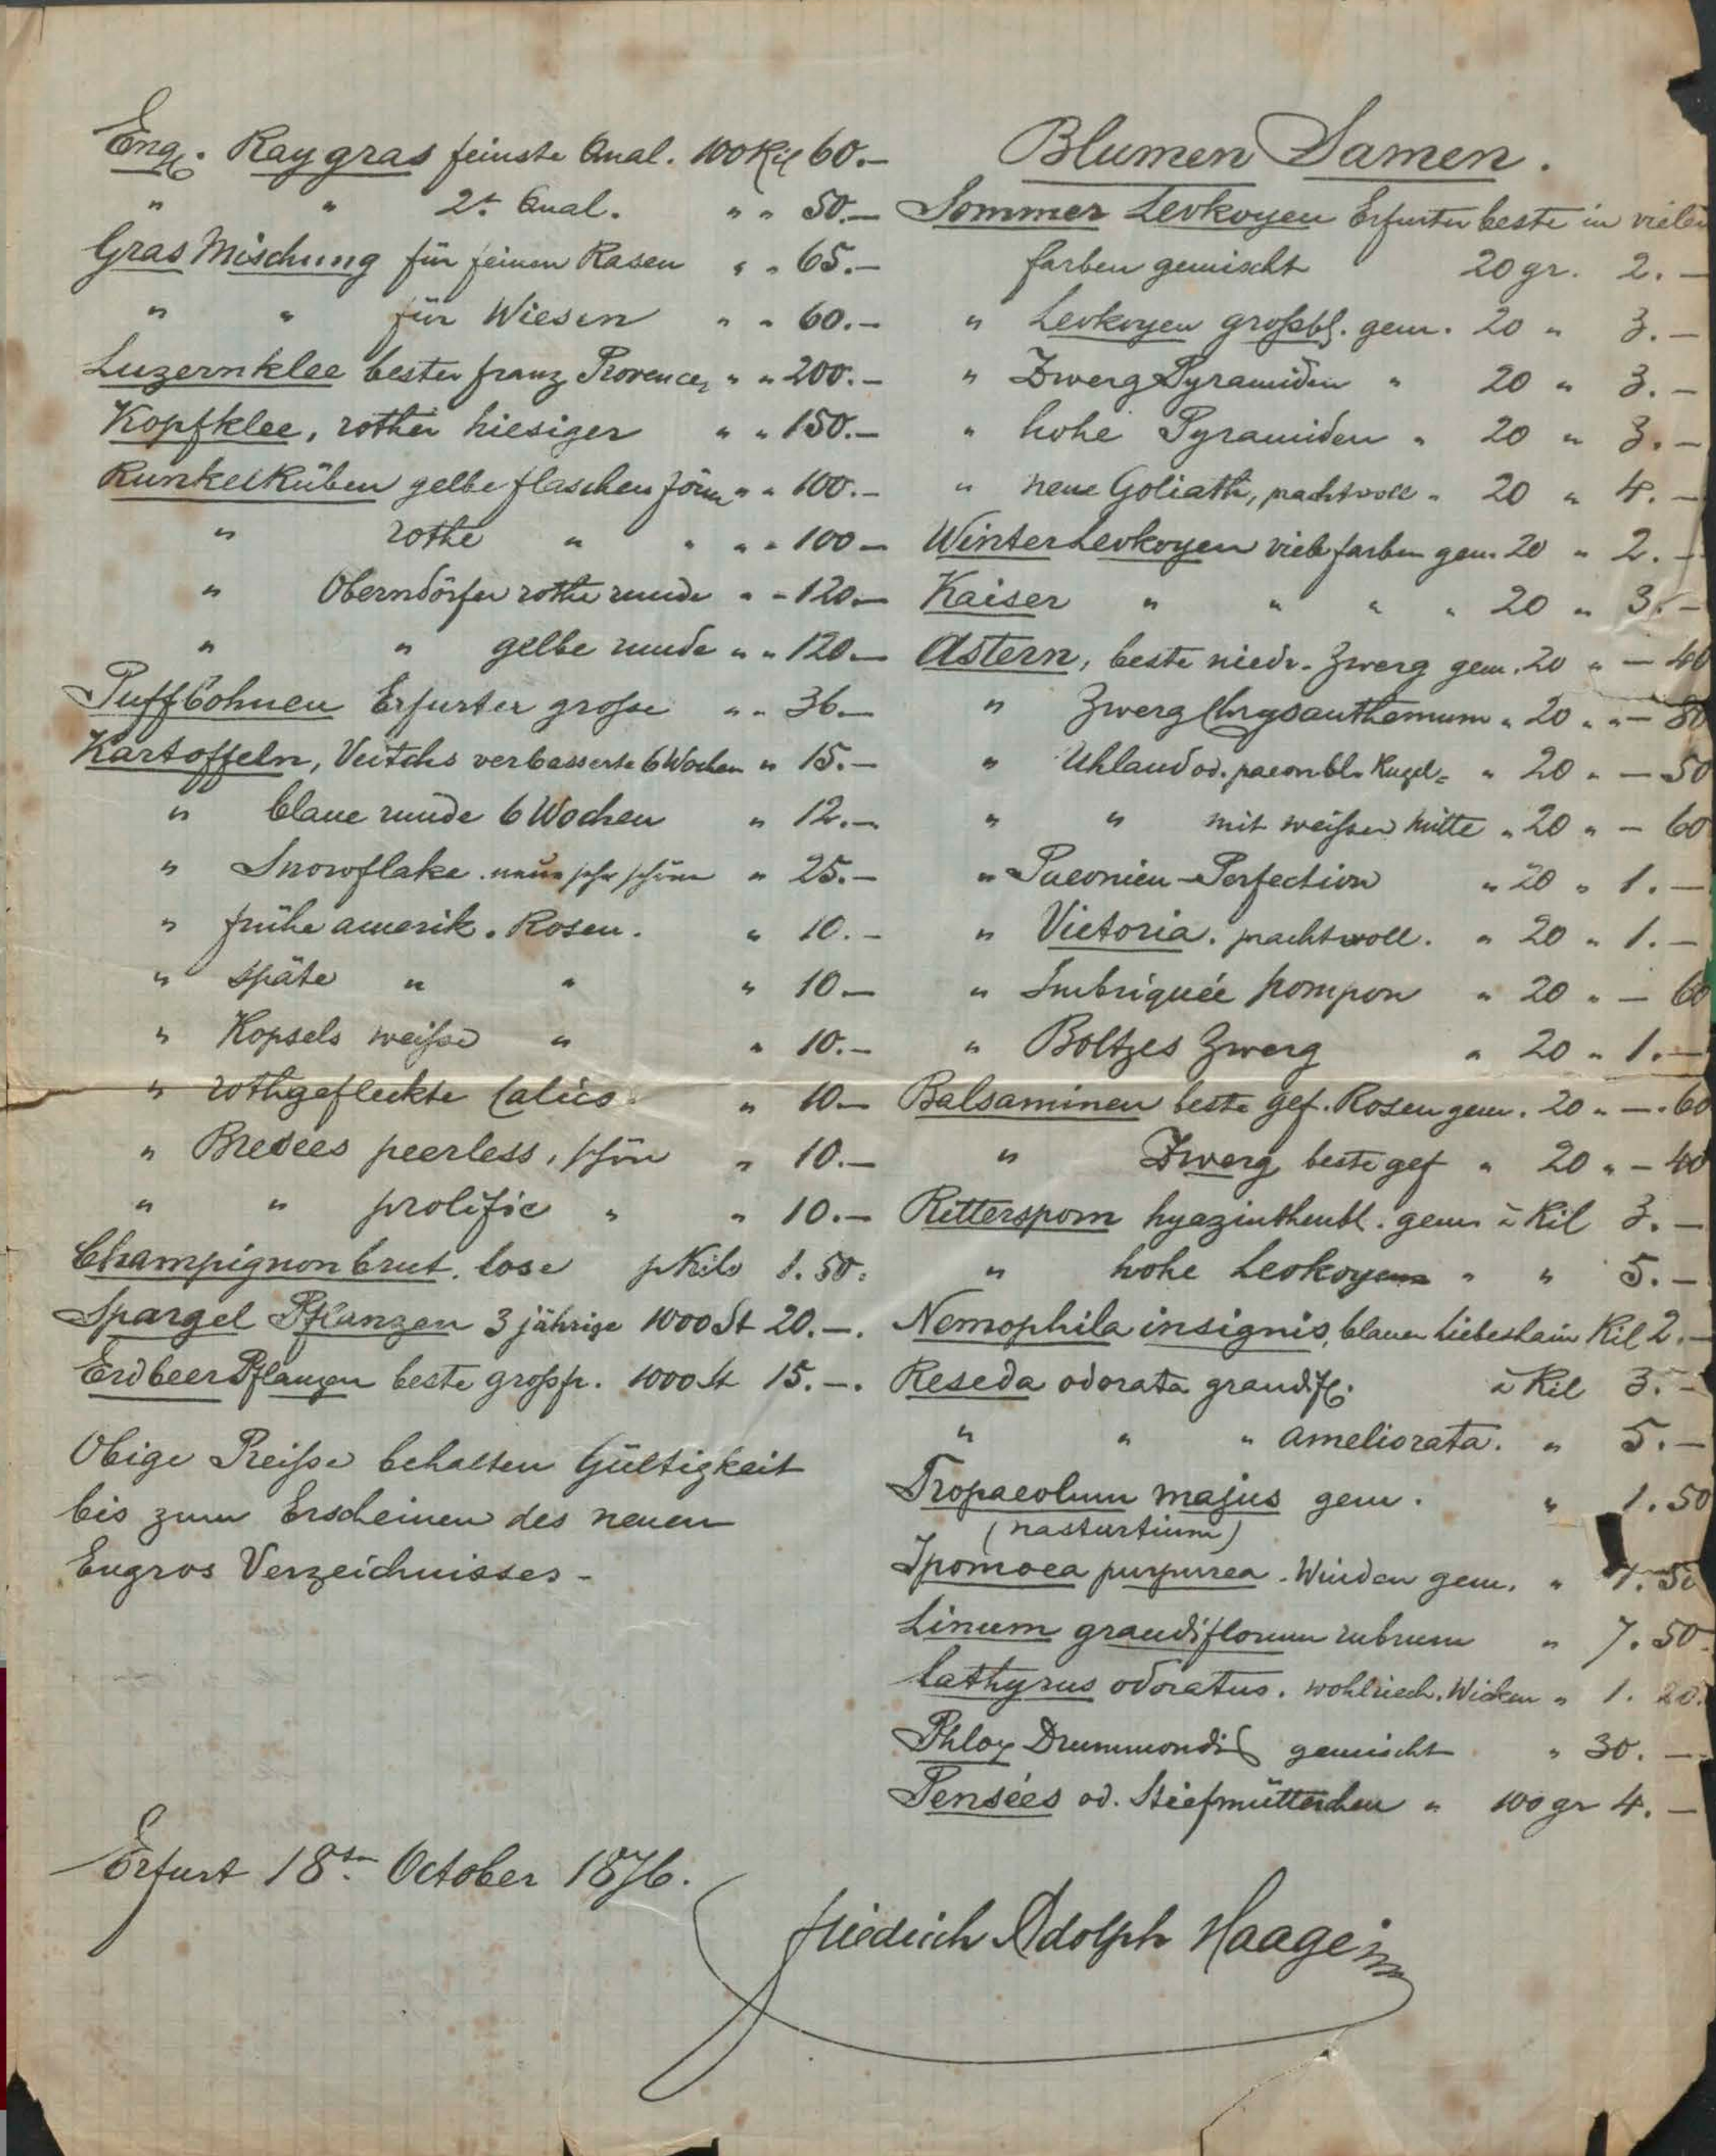 Engl. Raygras feinste Qual. 100 Kil 60.—
" " 2te Qual. " " 50.—
Gras Mischung für feinen Rasen " " 65.—
" " für Wiesen " " 60.—
Luzernklee bester franz Provencer " " 200.—
Kopfklee, rother hiesiger " " 150.—
RunkelRüben gelbe flaschenförm " " 100.—
" rothe " " " " 100—
" Oberndörfer rothe runde " " 120—
" " gelbe runde " " 120—
Puffbohnen Erfurter grosse " " 36—
Kartoffeln, Veitchs verbesserte 6 Wochen " 15.—
" blaue runde 6 Wochen " 12.—
" Snowflake. neue sehr schöne " 25.—
" frühe amerik. Rosen. " 10.—
" späte " " " 10—
" Kopsels weisse " " 10.—
" rothgefleckte Calico. " 10—
" Bresees peerless, schön " 10.—
" " prolific " " 10.—
Champignonbrut. lose p Kilo 1.50.
Spargel Pflanzen 3 jährige 1000 St 20.—.
Erdbeer Pflanzen beste grossfr. 1000 St 15.—.
Obige Preisse behalten Gültigkeit
bis zum Erscheinen des neuen
Engros Verzeichnisses—
Blumen Samen.
Sommer Levkoyen Erfurter beste in vielen
farben gemischt 20 gr. 2.—
" Levkoyen grossbl. gem. 20 " 3.—
" Zwerg Pyramiden " 20 " 3.—
" hohe Pyramiden " 20 " 3.—
" neue Goliath, prachtvoll " 20 " 4.—
Winter Levkoyen viele farben gem. 20 " 2.—
Kaiser " " " " 20 " 3.—
Astern, beste niedr. Zwerg gem. 20 " — 40
" Zwerg Chrysanthemum " 20 " " — 80
" Uhland od. paeonbl. Kugel= " 20 " — 50
" " mit weisser Mitte " 20 " — 60
" Paeonien-Perfection " 20 " 1.—
" Victoria. prachtvoll. " 20 " 1.—
" Imbriquée pompon " 20 " — 60
" Boltzes Zwerg " 20 " 1.—
Balsaminen beste gef. Rosen gem. 20 " —.60
" Zwerg beste gef " 20 " — 40
Rittersporn hyazinthenbl. gem à Kil 3.—
" hohe Levkoyen " " 5.—
Nemophila insignis, blauer Liebeshain Kil 2.—
Reseda odorata grandifl. à Kil 3.—
" " " ameliorata. " 5.—
Tropaeolum majus gem. " 1.50
(nasturtium)
Ipomoea purpurea. Winden gem. " 1.50
Linum grandiflorum rubrum " 7.50.
Lathyrus odoratus. wohlriech. Wicken " 1. 20.
Phlox Drummondii gemischt " 30.—
Pensées od. Stiefmütterchen " 100 gr 4.—
Erfurt 18ten October 1876.
Friedrich Adolph Haage jr